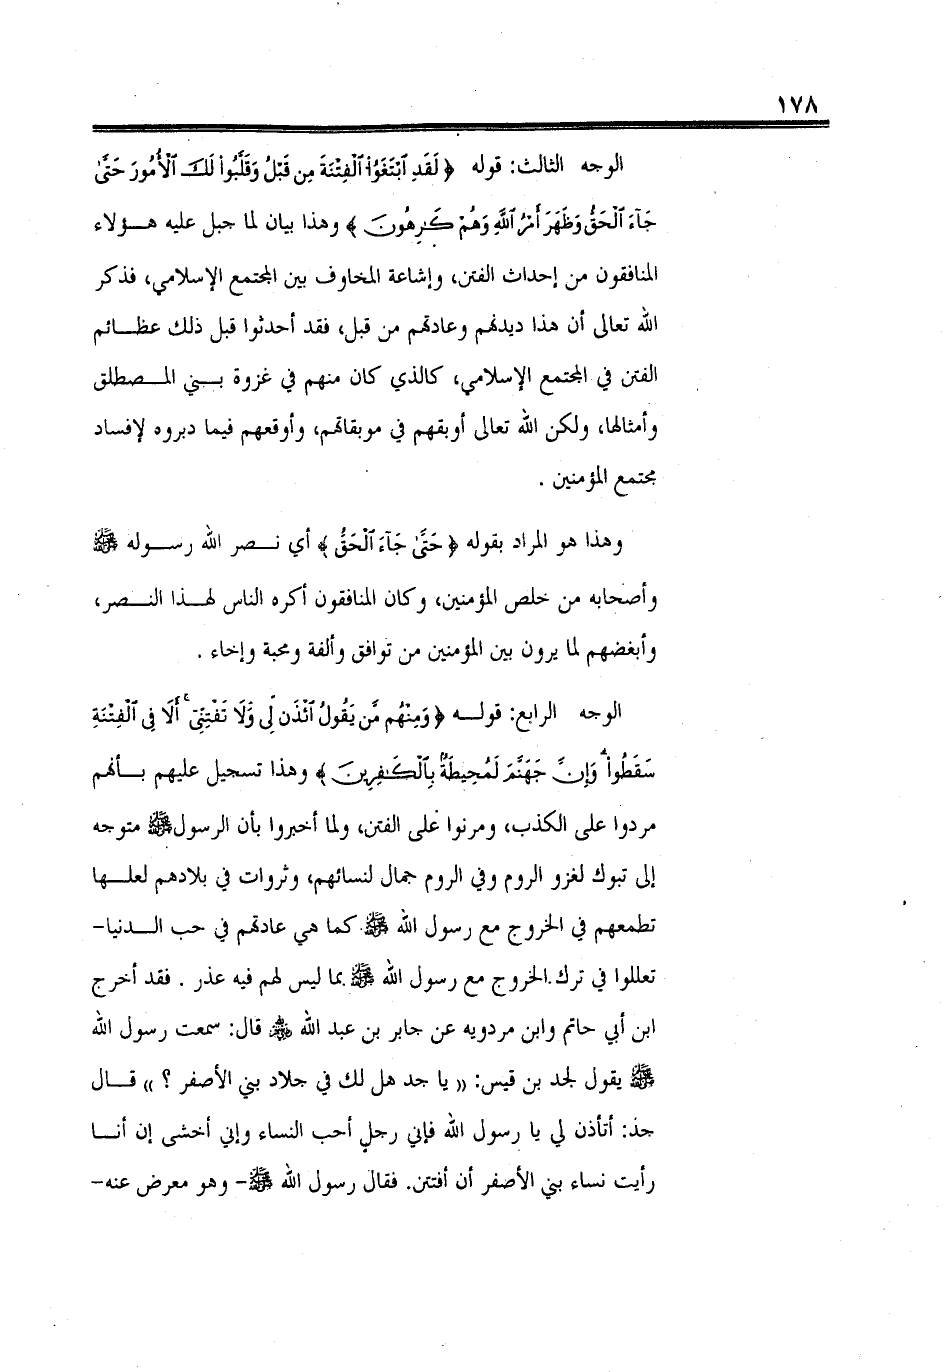 ١٧٨
الوجه الثالث: قوله ﴿ لَقَدِ ٱبْتَغَوُا۟ ٱلْفِتْنَةَ مِن قَبْلُ وَقَلَّبُوا۟ لَكَ ٱلْأُمُورَ حَتَّىٰ
جَآءَ ٱلْحَقُّ وَظَهَرَ أَمْرُ ٱللَّهِ وَهُمْ كَـٰرِهُونَ ﴾ وهذا بيان لما جبل عليه هـؤلاء
المنافقون من إحداث الفتن، وإشاعة المخاوف بين المجتمع الإسلامي، فذكر
الله تعالى أن هذا ديدنهم وعادتهم من قبل، فقد أحدثوا قبل ذلك عظـائم
الفتن في المجتمع الإسلامي، كالذي كان منهم في غزوة بـني المـصطلق
وأمثالها، ولكن الله تعالى أوبقهم في موبقاتهم، وأوقعهم فيما دبروه لإفساد
مجتمع المؤمنين .
وهذا هو المراد بقوله ﴿ حَتَّىٰ جَآءَ ٱلْحَقُّ ﴾ أي نـصر الله رسـوله ﷺ
وأصحابه من خلص المؤمنين، وكان المنافقون أكره الناس لهـذا النـصر،
وأبغضهم لما يرون بين المؤمنين من توافق وألفة ومحبة وإخاء .
الوجه الرابع: قولـه ﴿ وَمِنْهُم مَّن يَقُولُ ٱئْذَن لِّى وَلَا تَفْتِنِّىٓ ۚ أَلَا فِى ٱلْفِتْنَةِ
سَقَطُوا۟ ۗ وَإِنَّ جَهَنَّمَ لَمُحِيطَةٌۢ بِٱلْكَـٰفِرِينَ ﴾ وهذا تسجيل عليهم بـأنهم
مردوا على الكذب، ومرنوا على الفتن، ولما أخبروا بأن الرسول ﷺ متوجه
إلى تبوك لغزو الروم وفي الروم جمال لنسائهم، وثروات في بلادهم لعلـها
تطمعهم في الخروج مع رسول الله ﷺ كما هي عادتهم في حب الـدنيا-
تعللوا في ترك الخروج مع رسول الله ﷺ بما ليس لهم فيه عذر . فقد أخرج
ابن أبي حاتم وابن مردويه عن جابر بن عبد الله ﵁ قال: سمعت رسول الله
ﷺ يقول لجد بن قيس: (( يا جد هل لك في جلاد بني الأصفر ؟ )) قـال
جذ: أتأذن لي يا رسول الله فإني رجل أحب النساء وإني أخشى إن أنـا
رأيت نساء بني الأصفر أن أفتتن. فقال رسول الله ﷺ- وهو معرض عنه-